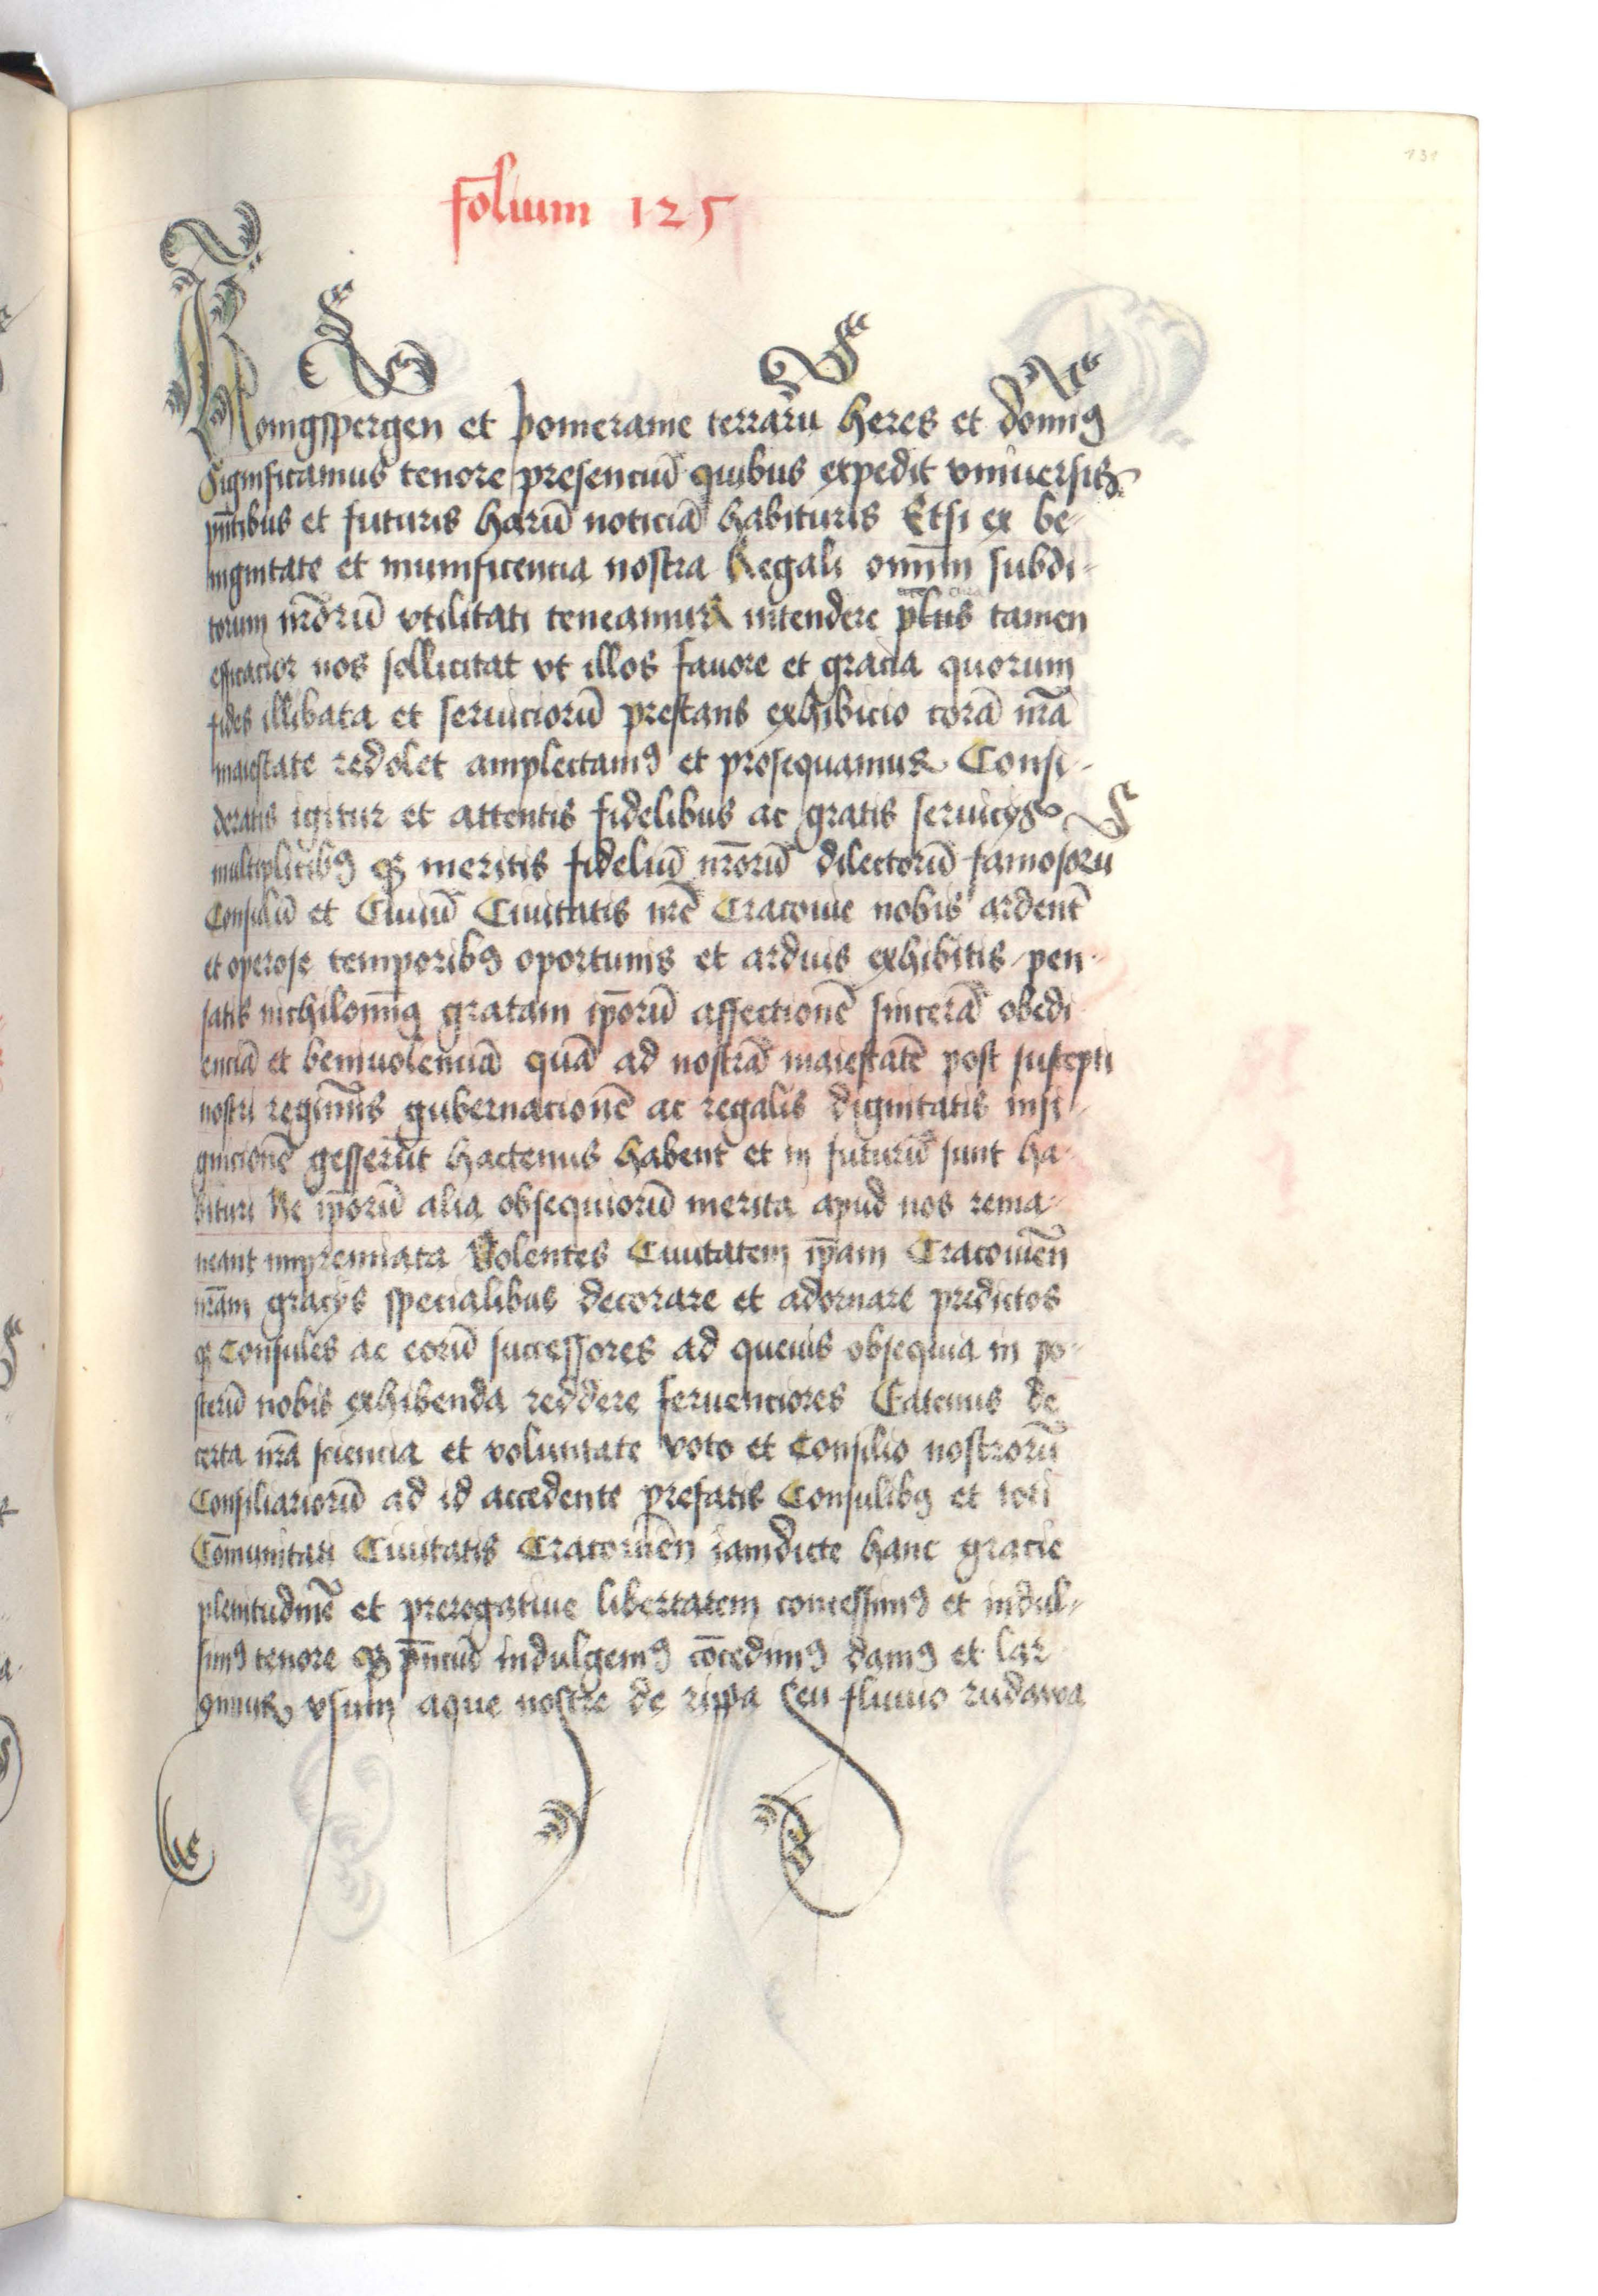 131
folium 125
Konigspergen et pomeranie terrarū heres et domīꝯ
Significamus tenore presenciū quibus expedit vniuersis
pn̄tibus et futuris harū noticiā habituris Etsi ex be-
nignitate et munificencia nostra Regali omīm subdi-
torum nr̄orū vtilitati teneamur intendere pl̄us tamen
efficacior nos sollicitat vt illos fauore et gracia quorum
fides illibata et seruiciorū prestans exhibicio corā nr̄a
maiestate redolet amplectamꝯ et prosequamur Consi-
deratis igitur et attentis fidelibus ac gratis seruicys
multiplicibꝯ qꝫ meritis fideliū nr̄orū dilectorū famosorū
Consulū et Ciuiū Ciuitatis nr̄e Cracouie nobis ardent̄
et operose temporibꝯ oportunis et arduis exhibitis pen-
satis nichilomīꝯ gratam ip̄orū affectionē sincerā obedi
enciā et beniuolenciā quā ad nostrā maiestatē post suscepti
nostri regimīs gubernacionē ac regalis dignitatis insi-
gnicionē gesserūt hactenus habent et in futurū sunt ha-
bituri Ne ip̄orū alia obsequiorū merita apud nos rema-
neant impremiata Volentes Ciuitatem ip̄am Cracouien̄
nr̄am gracys specialibus decorare et adornare predictos
qꝫ Consules ac eorū successores ad queuis obsequia in po-
sterū nobis exhibenda reddere feruenciores Eatenus de
certa nr̄a sciencia et voluntate voto et Consilio nostrorū
Consiliariorū ad id accedente prefatis Consulibꝯ et toti
Com̄unitati Ciuitatis Cracouien̄ iamdicte hanc gracie
plenitudinē et prerogatiue libertatem concessimꝯ et indul-
simꝯ tenore qꝫ pn̄ciū indulgemꝯ cōcedimꝯ damꝯ et lar
gimur vsum aque nostre de ripa seu fluuio rudawa